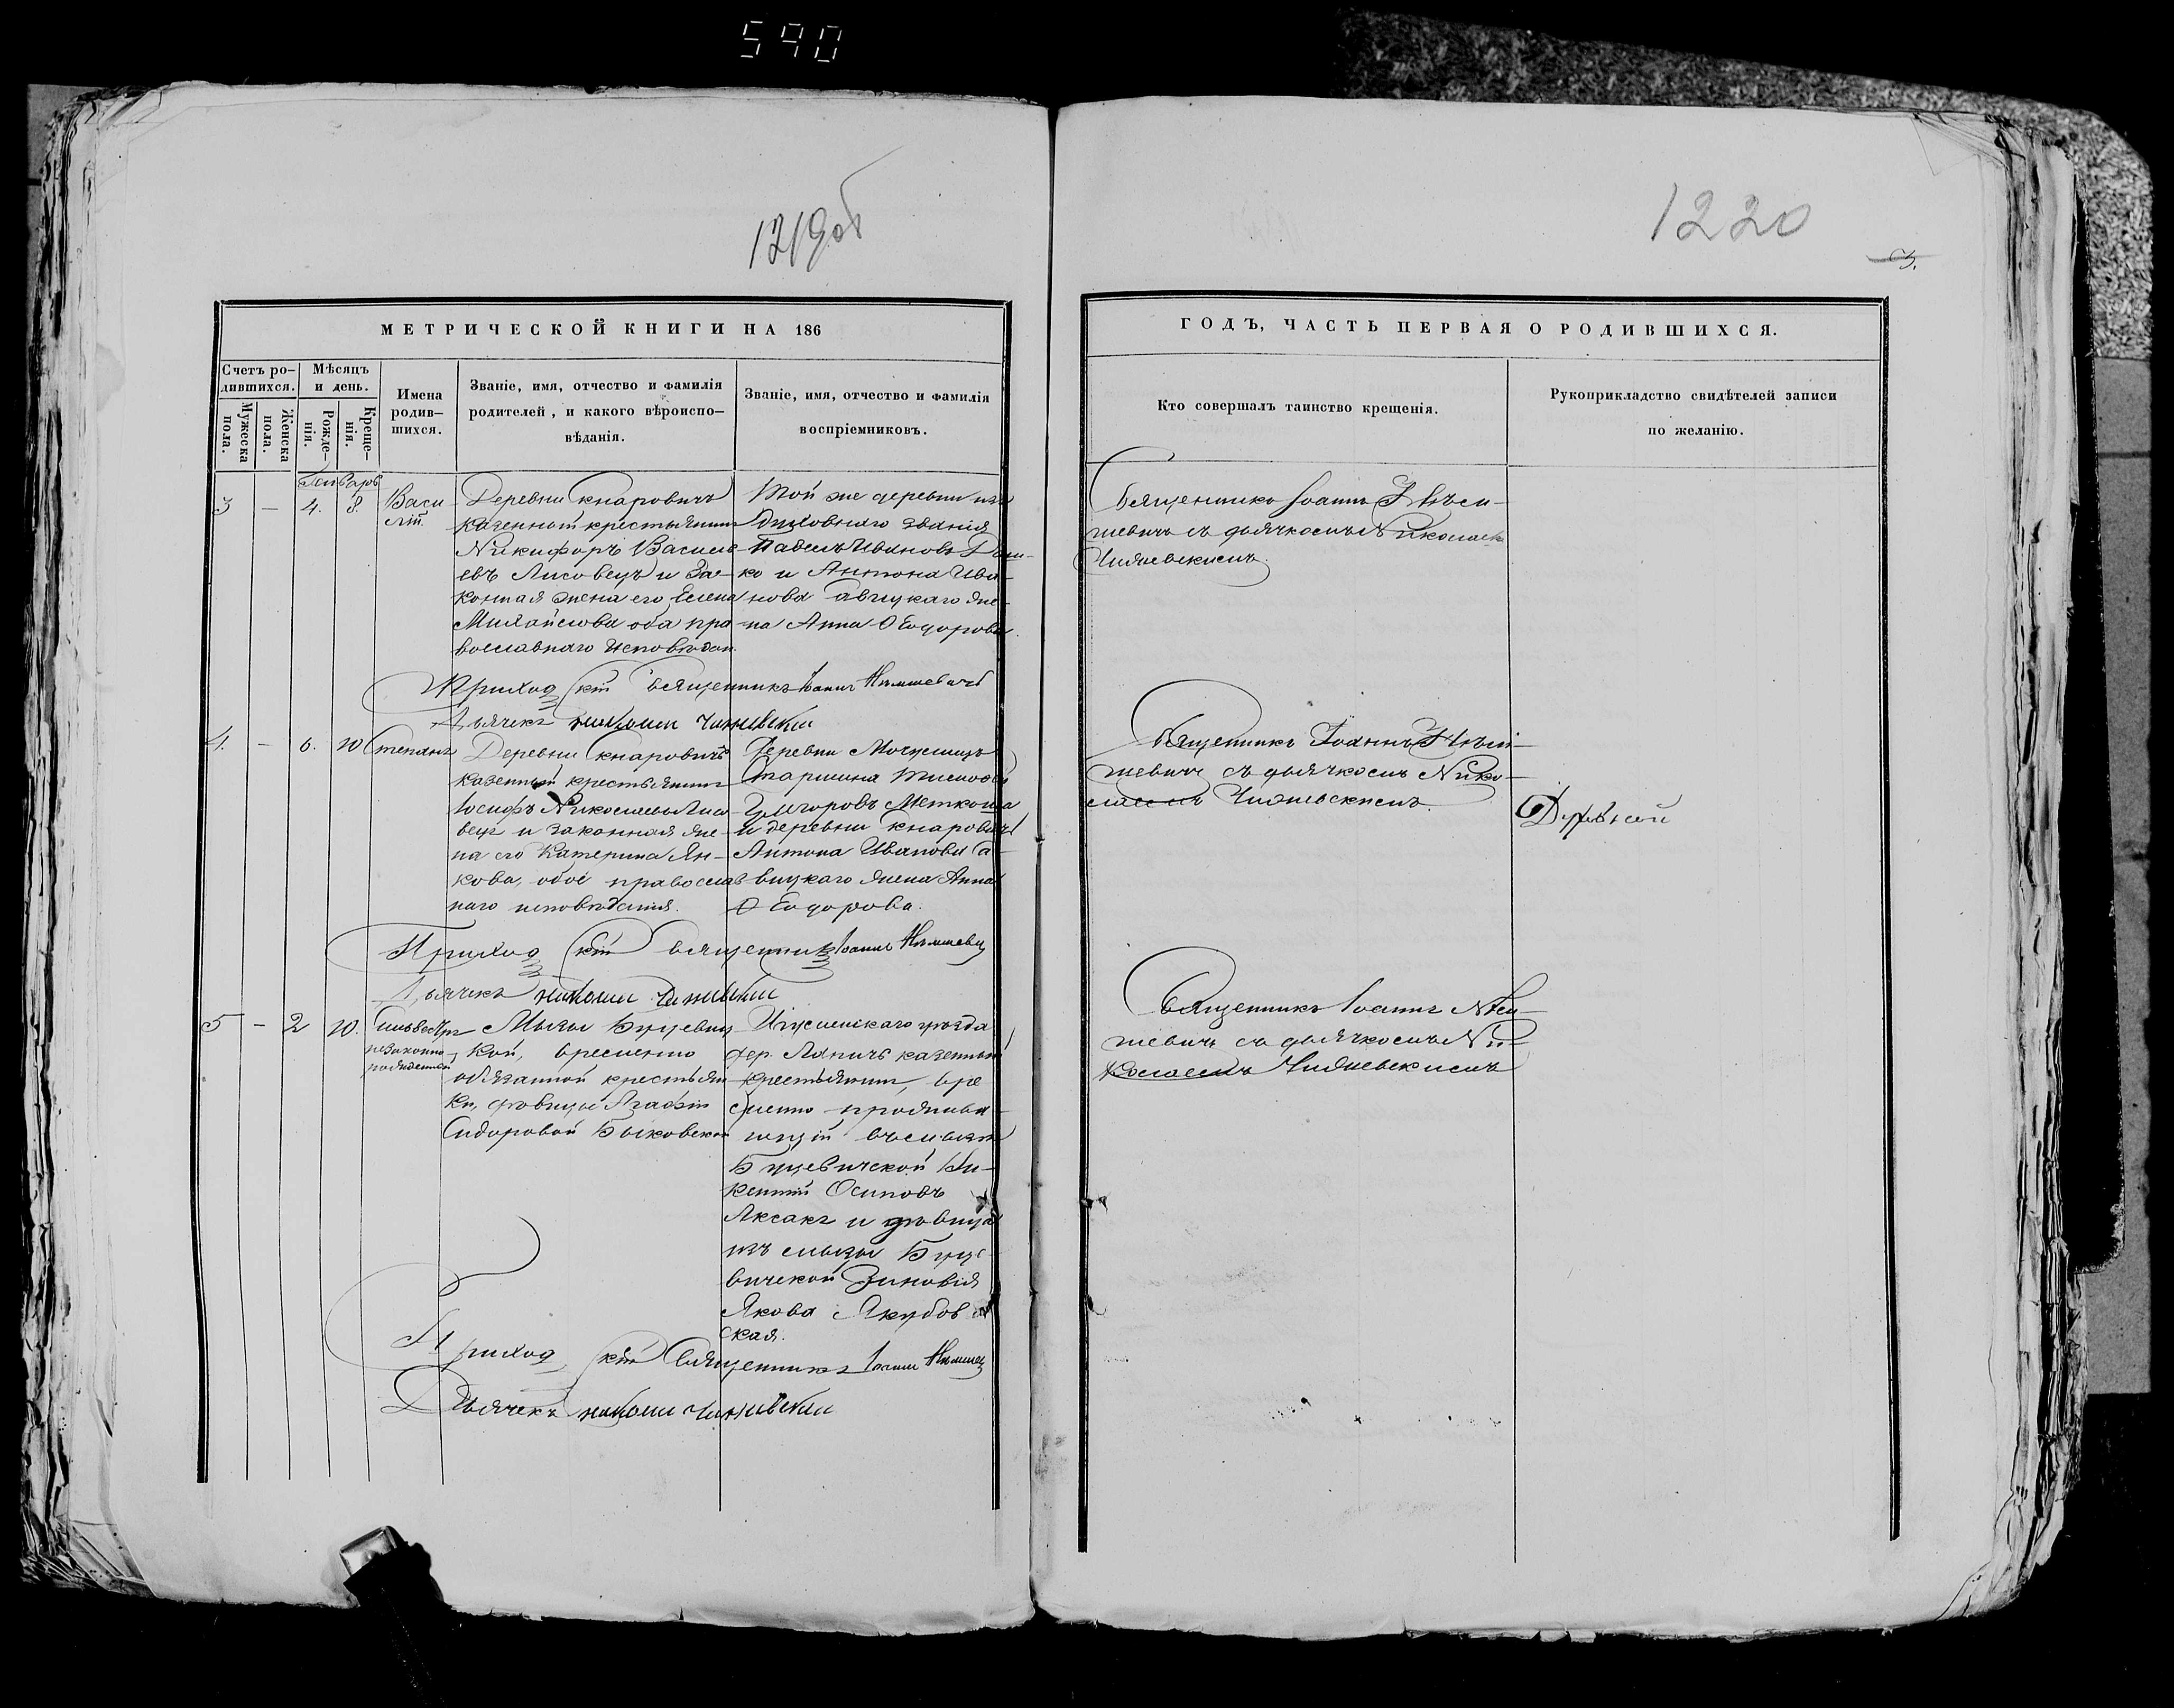 590
1219об
МЕТРИЧЕСКОЙ КНИГИ НА 186
Счетъ ро-
дившихся.
Мужеска
пола.
Женска
пола.
Мѣсяцъ
и день.
Рожде-
нія.
Креще-
нія.
Имена
родив-
шихся.
Званіе, имя, отчество и фамилія
родителей, и какого вѣроиспо-
вѣданія.
Званіе, имя, отчество и фамилія
воспріемниковъ.
Генварь
3 - 4. 8.
Васи
лій
Деревни Кнаровичъ
казенный крестьянинъ
Никифоръ Василь-
евъ Лисовецъ и За-
конная жена его Елена
Михайлова оба пра-
вославнаго исповѣдан.
Той же деревни изъ
духовнаго званія
Павелъ Ивановъ
ко и Антона Ива-
нова Савицкаго же-
на Анна Ѳеодорова.
Приходскій Священникъ Іоаннъ
Дьячекъ Николай
4. - 6. 10
Степанъ
Деревни Кнаровичъ
казенный крестьянинъ
Іосифъ Николаевъ Лисо-
вецъ и законная же-
на его Катерина Ян-
кова, обоє православ-
наго исповѣданія.
Деревни
Старшина
Григоровъ
и деревни Кнаровичъ
Антона Иванова Са-
вицкаго жена Анна
Ѳеодорова.
Приходскій Священникъ Іоаннъ
Дьячекъ Николай
5 - 2 10.
Сильвестръ
незаконно-
рожденный
Мызы Буцевич
кой, временно
обязанной крестьян
ки, дѣвицы Агафіи
Сидоровой Быковской
Игуменскаго уѣзда
дер. Лапичъ казенный
крестьянинъ, вре
менно прожива-
ющій въ мызѣ
Буцевичской Ви-
кентій Осиповъ
Аксакъ и дѣвица
изъ мызы Буце-
вичской Зиновія
Якова Якубов
ская.
Приходскій Священникъ Іоаннъ
Дьячекъ Николай
1220
3.
ГОДЪ, ЧАСТЬ ПЕРВАЯ О РОДИВШИХСЯ.
Кто совершалъ таинство крещенія.
Рукоприкладство свидѣтелей записи
по желанію.
Священникъ Іоаннъ
шевичъ съ дьячкомъ Николаемъ
Священникъ Іоаннъ
шевичъ съ дьячкомъ Нико-
лаемъ
Священникъ Іоаннъ
шевичъ съ дьячкомъ Ни-
колаемъ